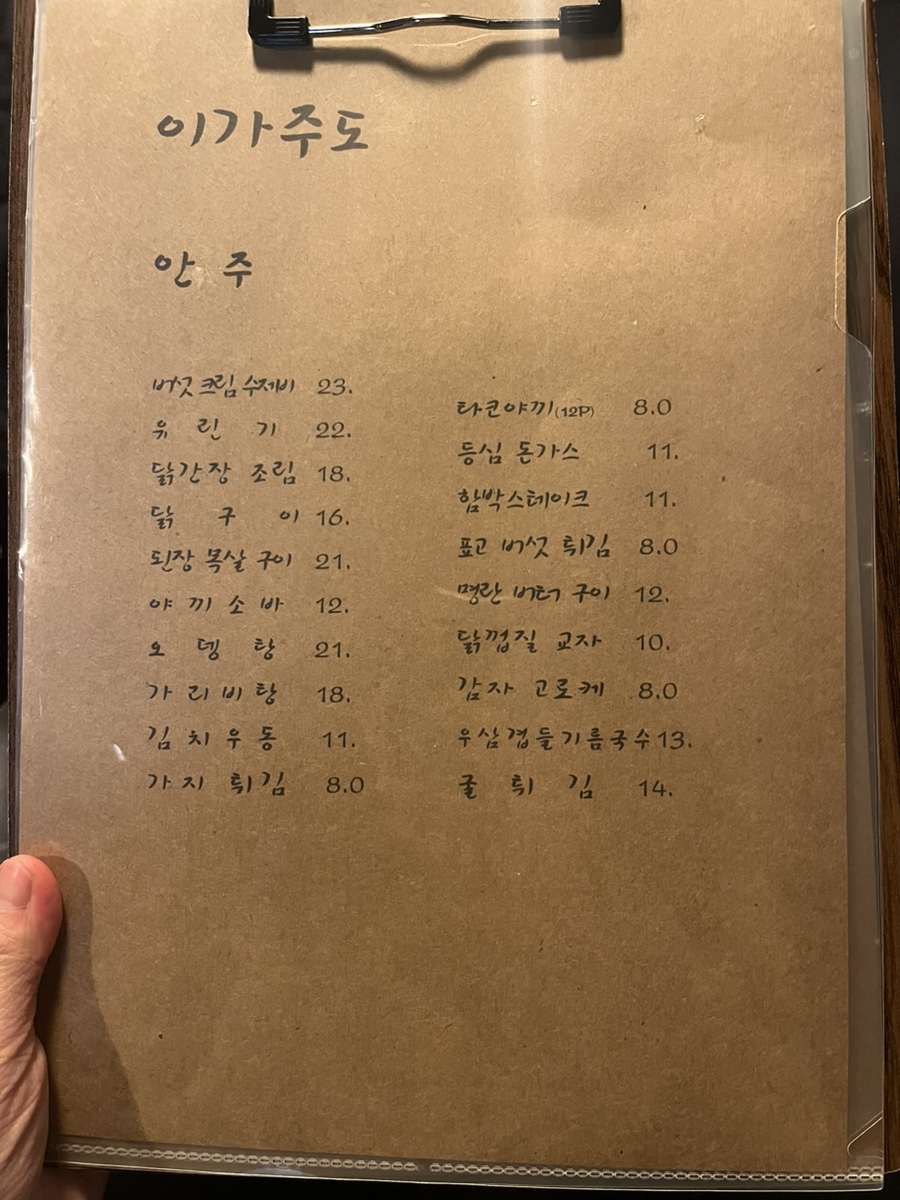 이가주도
안주
버섯크림수제비 23.
유린기 22.
닭간장 조림 18.
닭구이 16.
된장 목살 구이 21.
야끼소바 12.
오뎅탕 21.
가리비탕 18.
김치우동 11.
가지 튀김 8.0
타코야끼(12P) 8.0
등심 돈가스 11.
함박스테이크 11.
표고 버섯 튀김 8.0
명란 버터 구이 12.
닭껍질 교자 10.
감자 고로케 8.0
우삼겹들기름국수 13.
굴튀김 14.